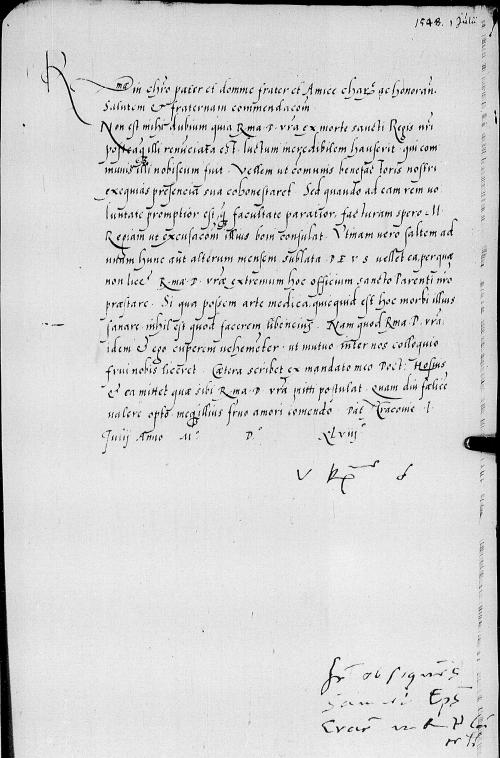 1548. 1 Julii
R ma in chro pater et domine frater et Amice chars ac honoran.
Salutem & fraternam commendacom
Non est mihi dubium quia R.ma D. vra ex morte sancti Regis nri
posteaq illi renuciata est, luctum incredibilem hauserit, qui com
munis illi nobiscum fuit. Vellem ut comunis benefactoris nostri
exequias presencia sua cohonestaret. Sed quando ad eam rem vo
luntate promptior est, q facultate paratior, facturam spero M.
Regiam ut excusacom illius boni consulat. Vtinam vero saltem ad
unum hunc aut alterum mensem sublata DEVS vellet ea, per quæ
non licet R.ma D. vræ extremum hoc officium sancto Parenti nro
præstare. Si qua possem arte medica, quicquid est hoc morbi illius
sanare, nihil est quod facerem libencius. Nam quod R.ma D. vra
idem & ego cuperem vehementer, ut mutuo inter nos colloquio
frui nobis liceret. Cætera scribet ex mandato meo Doct: Hosius
& ea mittet quæ sibi R.ma D. vra mitti postulat. Quam diu fælicē
valere opto meq illius fruo amori comendo. Dat Cracovie I
Julij Anno M.° D.° XLviij°
Samuel Eps